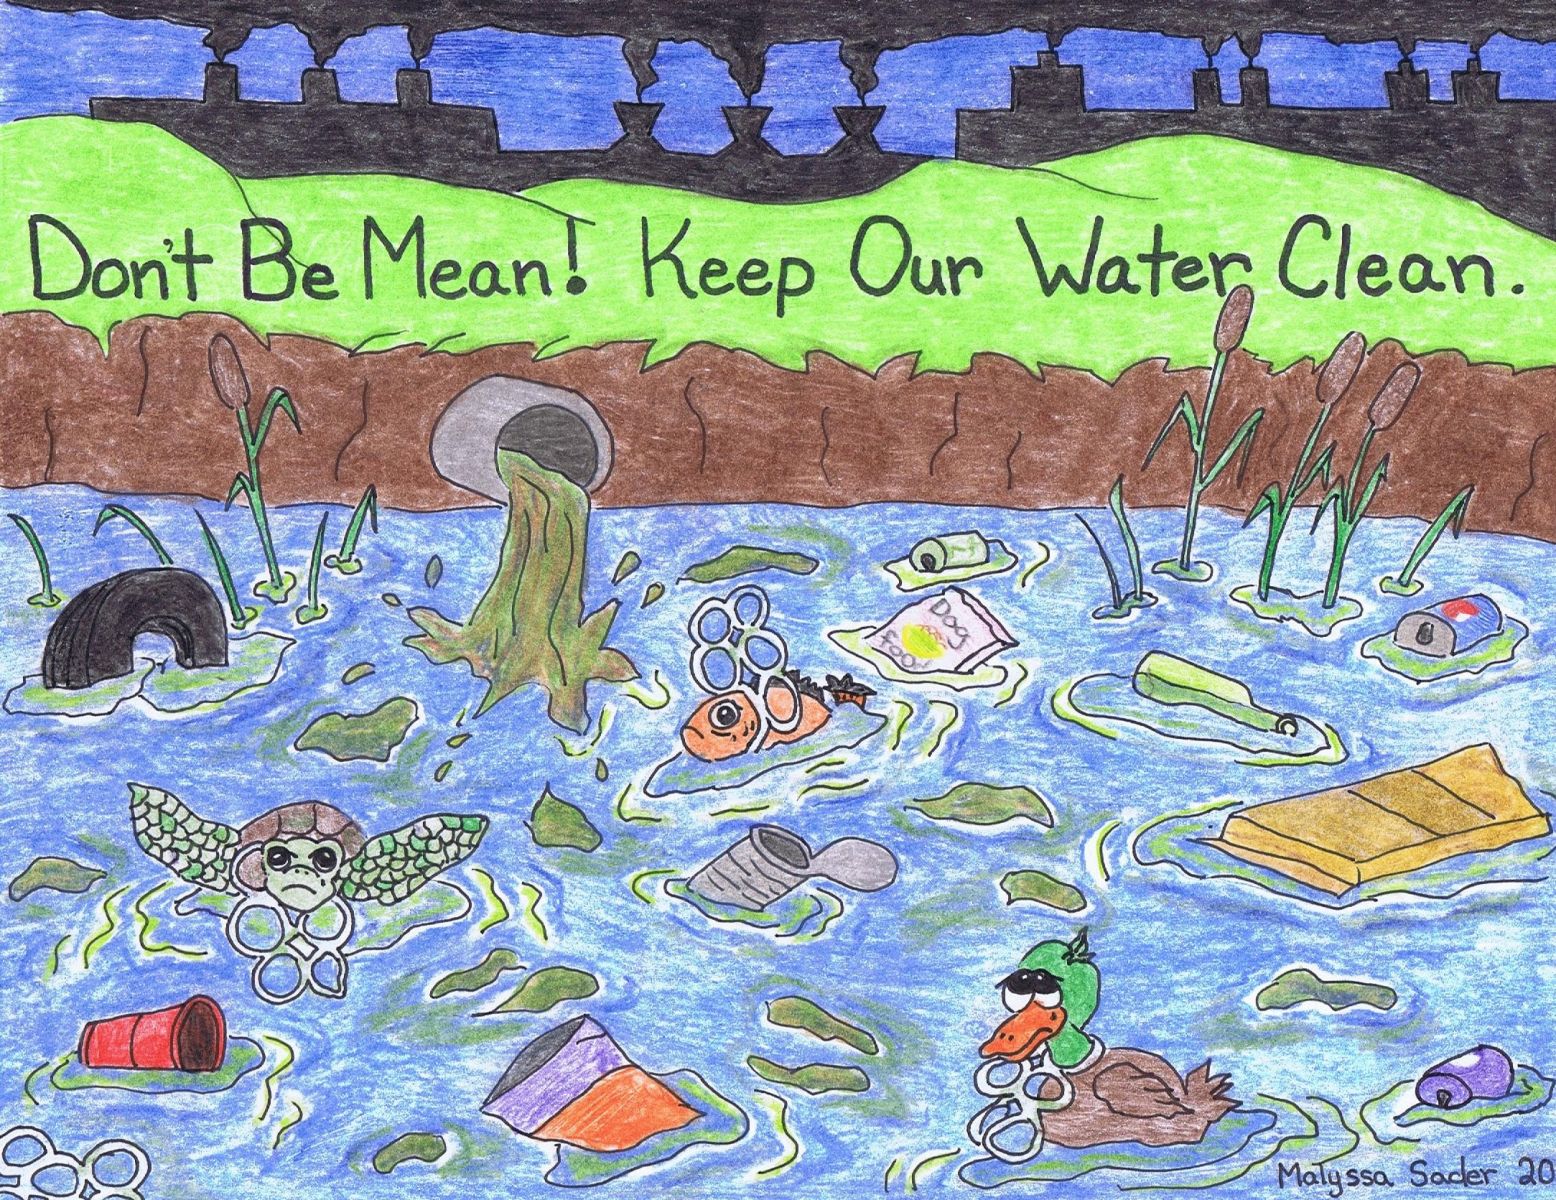 Don't Be Mean! Keep Our Water Clean.
Dog
Food
Malyssa Sader 20